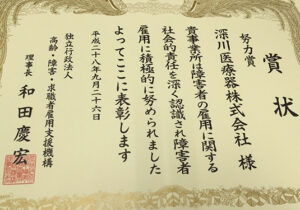 賞状
努力賞
深川医療器株式会社 様
貴事業所は障害者の雇用に関する
社会的責任を深く認識され障害者
雇用に積極的に努められました
よってここに表彰します
平成二十八年九月二十六日
独立行政法人
高齢・障害・求職者雇用支援機構
理事長 和田慶宏